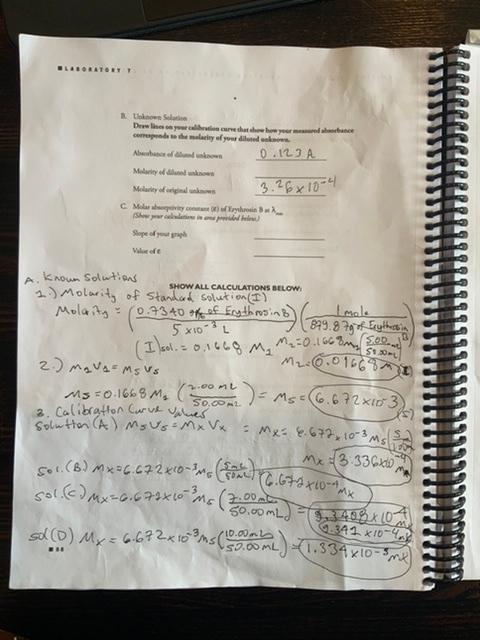 LABORATORY 7
B. Unknown Solution
Draw lines on your calibration curve that show how your measured absorbance
corresponds to the molarity of your diluted unknown.
Absorbance of diluted unknown 0.123 A
Molarity of diluted unknown
Molarity of original unknown 3.26 x 10⁻⁴
C. Molar absorptivity constant (ε) of Erythrosin B at λmax
(Show your calculations in area provided below.)
Slope of your graph
Value of ε
SHOW ALL CALCULATIONS BELOW:
A. Known Solutions
1.) Molarity of Standard solution (I)
Molarity = (0.7340 g of Erythrosin B / 5 x 10⁻³ L) (1 mole / 879.87g of Erythrosin B)
(I) sol. = 0.1668 M₁ M₂=0.1668M₁ (5.00 mL / 50.00mL)
M₂=0.01668 M
2.) M₂V₂ = M₅V₅
M₅ = 0.1668 M₂ (2.00 mL / 50.00mL) = M₅ = 6.672 x 10⁻³
3. Calibration Curve Values
Solution (A) M₅V₅ = MxVx = Mx = 6.672 x 10⁻³ M₅
Mx = 3.336x10⁻⁴
Sol. (B) Mx=6.672 x 10⁻³ M₅ (5mL / 50mL) = 6.672 x 10⁻⁴ Mx
Sol. (C) Mx=6.672 x 10⁻³ M₅ (7.00mL / 50.00mL) = 9.3408 x 10⁻⁴ Mx
9.341 x 10⁻⁴ Mx
Sol (D) Mx = 6.672 x 10⁻³ M₅ (10.00mL / 50.00mL) = 1.334 x 10⁻³ Mx
88